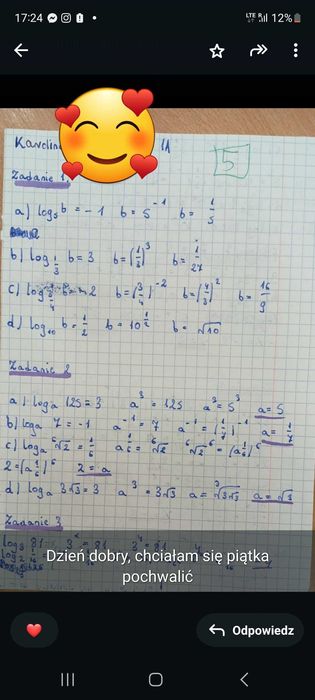 17:24
LTE 12%
Karolin IA
5
Zadanie 1
a) log₅ b = -1 b = 5⁻¹ b = 1/5
b) log 1/3 b = 3 b = (1/3)³ b = 1/27
c) log 3/4 b = -2 b = (3/4)⁻² b = (4/3)² b = 16/9
d) log₁₀ b = 1/2 b = 10^1/2 b = √10
Zadanie 2
a) logₐ 125 = 3 a³ = 125 a³ = 5³ a = 5
b) logₐ 7 = -1 a⁻¹ = 7 a⁻¹ = (1/7)⁻¹ a = 1/7
c) logₐ ⁶√2 = 1/6 a^1/6 = ⁶√2 ⁶√2⁶ = (a^1/6)⁶
2 = (a^1/6)⁶ 2 = a
d) logₐ 3√3 = 3 a³ = 3√3 a = ³√3√3 a = √3
Zadanie 3
log₃ 81 3ˣ = 81 3⁴ = 81 4
Dzień dobry, chciałam się piątka
pochwalić
Odpowiedz